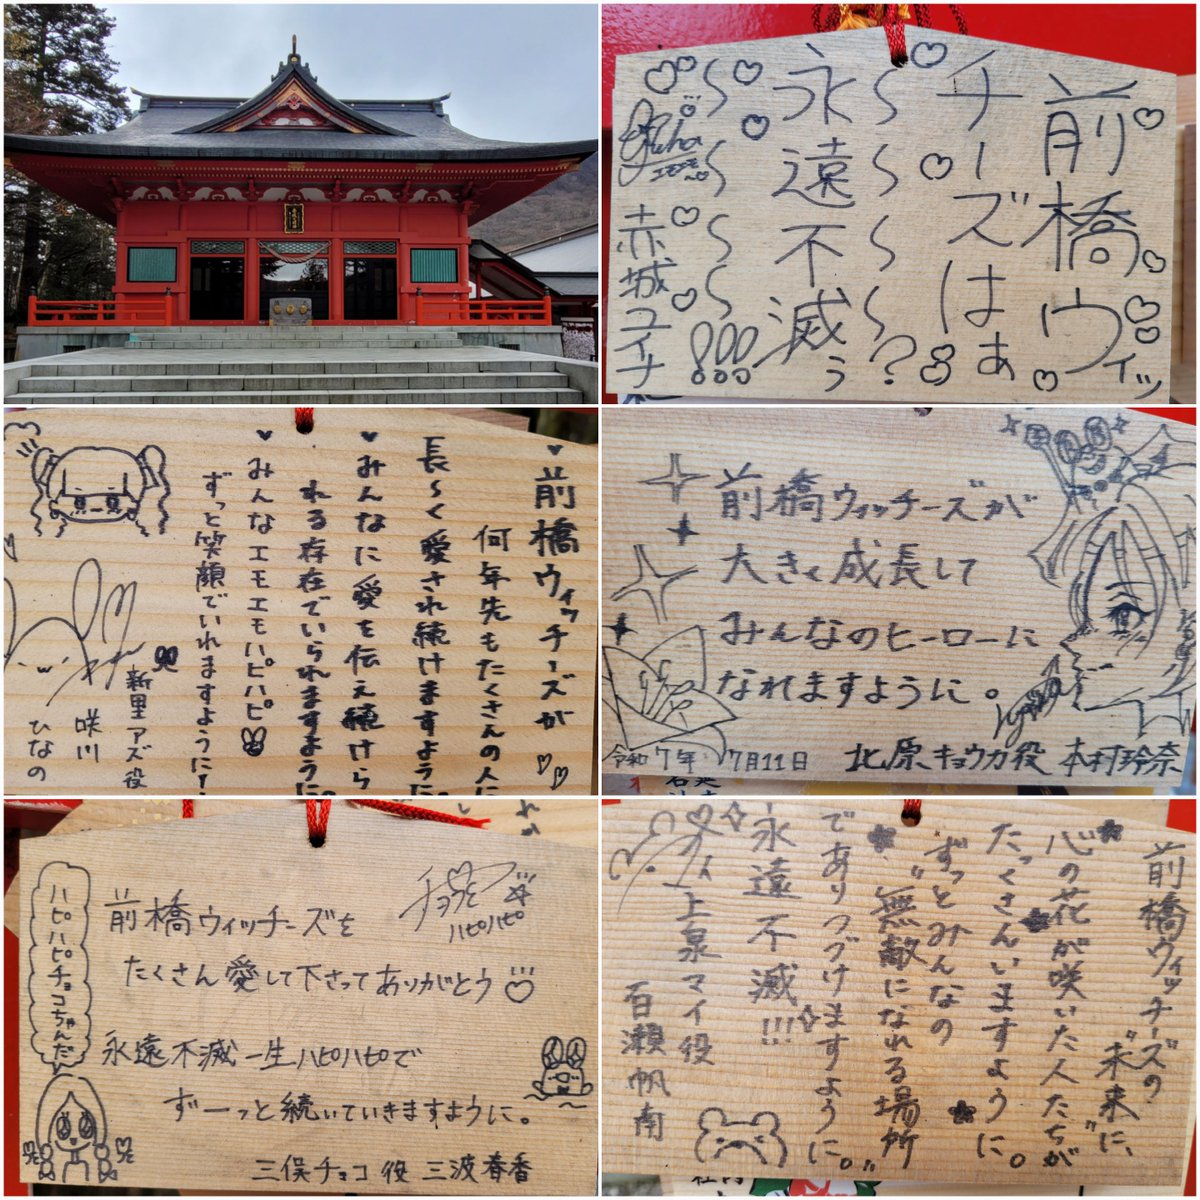 前橋ウィッ
チーズはぁ
〜〜〜〜〜?
永遠不滅ぅ
〜〜〜〜〜!!!
赤城ユイナ
前橋ウィッチーズが
何年先もたくさんの人に
長〜く愛され続けますように
みんなに愛を伝え続けら
れる存在でいられますように
みんなエモエモハピハピ
ずっと笑顔でいれますように!
新里アズ役
咲川
ひなの
前橋ウィッチーズが
大きく成長して
みんなのヒーローに
なれますように。
令和7年 7月11日
北原キョウカ役 本村玲奈
ハピハピチョコちゃんだ
チョコ
ハピハピ
前橋ウィッチーズを
たくさん愛して下さってありがとう
永遠不滅一生ハピハピで
ずーっと続いていきますように。
三俣チョコ役 三波春香
前橋ウィッチーズの
"未来に、
心の花が咲いた人たちが
たっくさんいますように。
ずっとみんなの
"無敵になれる場所"
でありつづけますように。
永遠不滅!!!
上泉マイ役
百瀬帆南